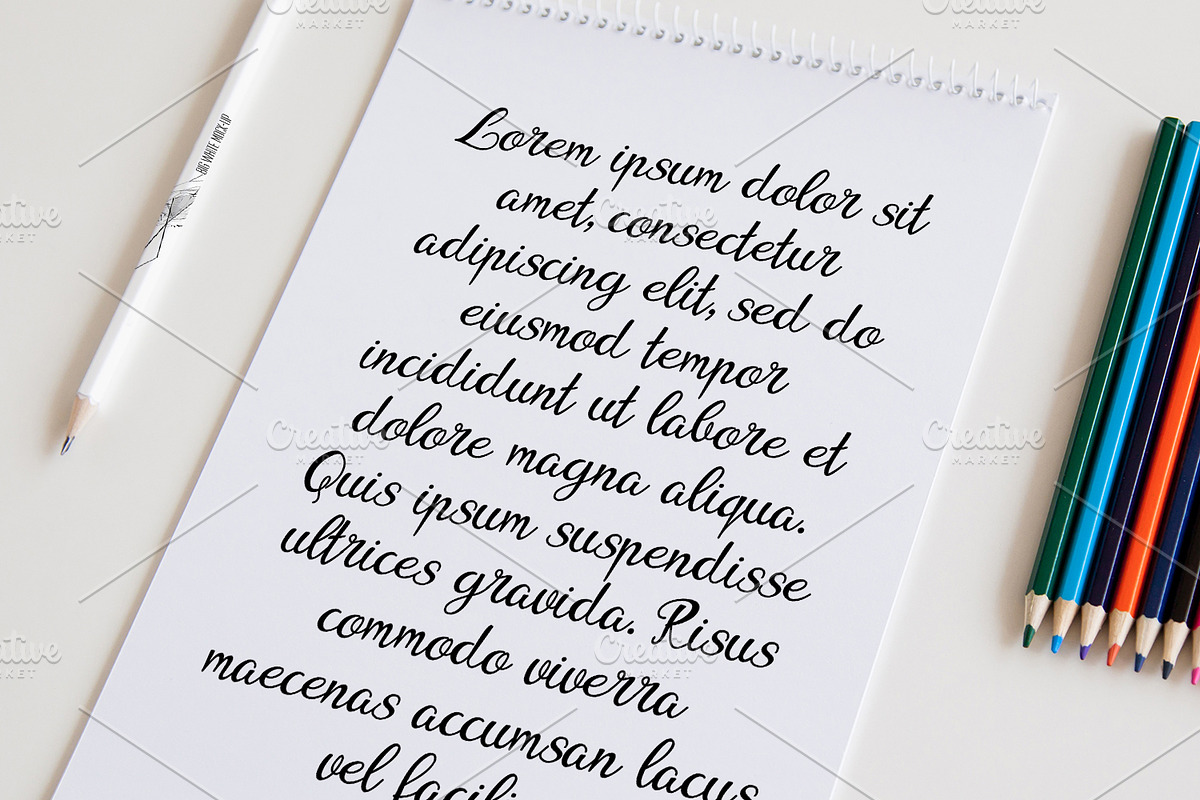 Lorem ipsum dolor sit
amet, consectetur
adipiscing elit, sed do
eiusmod tempor
incididunt ut labore et
dolore magna aliqua.
Quis ipsum suspendisse
ultrices gravida. Risus
commodo viverra
maecenas accumsan lacus
vel facili
BIG WHITE MOCK-UP
Creative
MARKET
Creative
MARKET
Creative
MARKET
Creative
MARKET
Creative
MARKET
Creative
MARKET
Creative
MARKET
Creative
MARKET